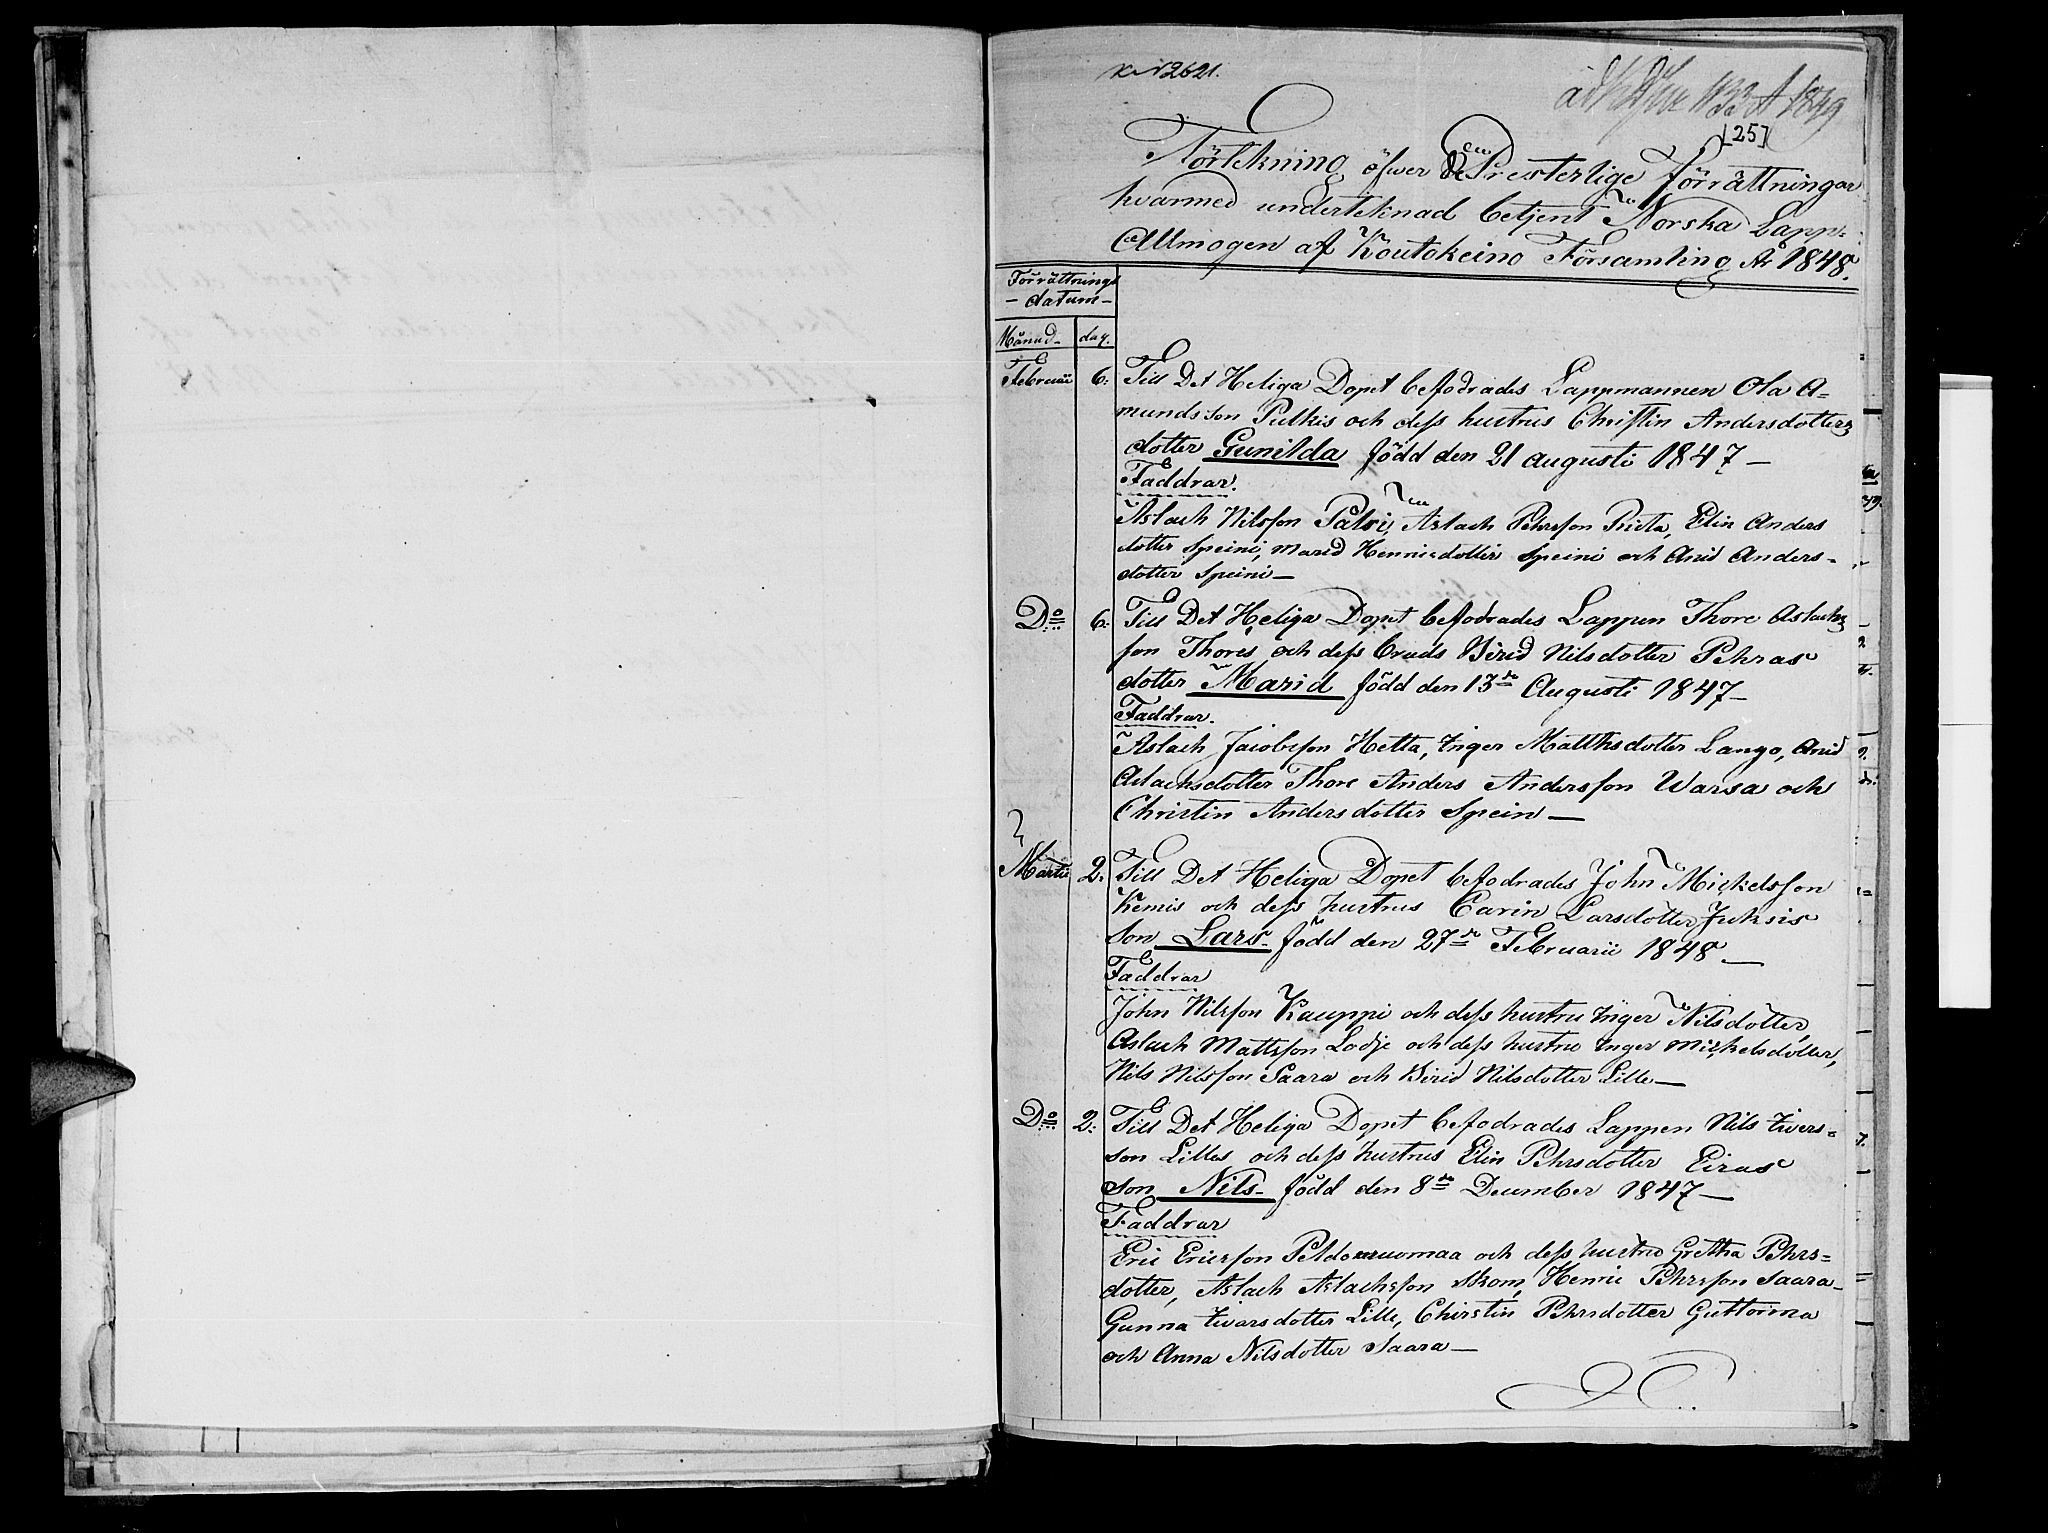 [25]
Förtekning öfwer de Presterlige förrättningar
hvarmed underteknad betjent Norska Lapp-
Allmogen af Koutokeino Församling År 1848.
Förrättnings
- datum -
Månad- dag.
Februii 6. Till Det Heliga Dopet befodrades Lappmannen Ola A-
mundsson Pulkis och dess hustrus Christin Andersdotters
dotter Gunilda född den 21 augusti 1847 -
Faddrar.
Aslach Nilsson Paloj, Aslach Pehrsson Pirita, Elin Anders
dotter Speini, Marid Henricdotter Speini och Anid Anders-
dotter Speini -
Do 6. Till Det Heliga Dopet befodrades Lappen Thore Aslachs
son Thores och dess bruds Birid Nilsdotter Pehras
dotter Marid född den 13de Augusti 1847 -
Faddrar.
Aslach Jacobsson Hetta, Inger Matthsdotter Lango, Anid
Aslachsdotter Thore Anders Andersson Warsa och
Christin Andersdotter Spein -
Martii 2. Till Det Heliga Dopet befodrades John Mickelsson
Kemis och dess hustrus Carin Larsdotter Juksis
son Lars- född den 27de Februarii 1848 -
Faddrar
John Nilsson Kauppi och dess hustru Inger Nilsdotter,
Aslach Mattsson Lodje och dess hustru Inger Mickelsdotter,
Nils Nilsson Saara och Birid Nilsdotter Lille -
Do 2. Till Det Heliga Dopet befodrades Lappen Nils Ivers-
son Lilles och dess hustrus Elin Pehrsdotter Eiras
son Nils- född den 8de December 1847 -
Faddrar
Eric Ericsson Peldowuomaa och dess hustru Gretha Pehrs-
dotter, Aslach Aslachsson Skom, Henric Pehrsson Saara-
Gunna Ivarsdotter Lille, Christin Pehrsdotter Guttorma
och Anna Nilsdotter Saara -